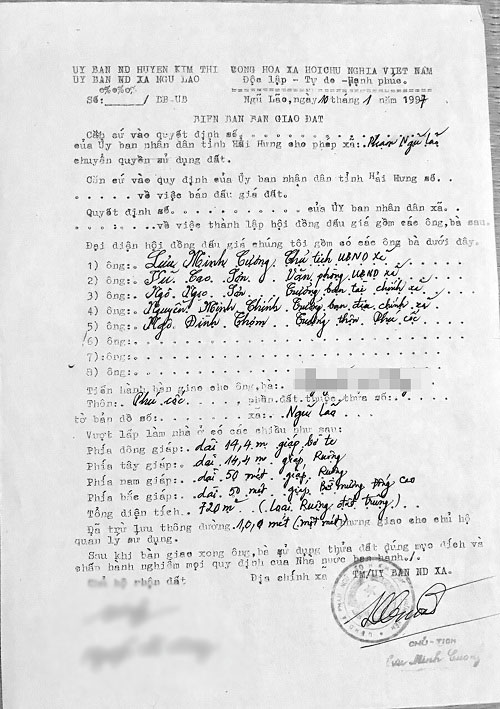 UY BAN ND HUYEN KIM THI CONG HOA XA HOICHU NGHIA VIET NAM
UY BAN ND XA NGU LAO Độc lập - Tự do -Hạnh phúc.
Số: / DB-UB Ngũ Lão, ngày 10 tháng 1 năm 1997
BIEN BAN BAN GIAO ĐAT
Căn cứ vào quyết định số
của Ủy ban nhân dân tỉnh Hải Hưng cho phép xã: Ngũ Lão
chuyển quyền sử dụng đất.
Căn cứ vào quyết định của Ủy ban nhân dân tỉnh Hải Hưng số
về việc bán đấu giá đất.
Quyết định số của ỦY ban nhân dân xã
về việc thành lập hội đồng đấu giá gồm các ông, bà sau.
Đại diện hội đồng đấu giá chúng tôi gồm có các ông bà dưới đây.
1) ông: Lưu Minh Cường Chủ tịch UBND xã
2) ông: Cao Sơn Văn phòng UBND xã
3) ông: Ngô Ngọc Trưởng ban tài chính xã
4) ông: Nguyễn Minh Chính Trưởng ban địa chính xã
5) ông: Ngô Đình Thơm Trưởng thôn Phú cốc
6) ông:
7) ông:
8) ông:
Tiến hành bàn giao cho ông, bà:
Thôn: Phú cốc phần đất thuộc thửa số:
tờ bản đồ số: xã: Ngũ Lão
Vượt lập làm nhà ở có các chiều như sau:
Phía đông giáp: dài 14,4 m giáp bờ
Phía tây giáp: dài 14,4 m giáp Ruộng
Phía nam giáp: dài 50 mét giáp Ruộng
Phía bắc giáp: dài 50 mét giáp bờ mương Đống cao
Tổng diện tích 720 m² (loại Ruộng đất trũng)
Đã trừ lưu thông đường 1,0,0 mét (một mét) nhưng giao cho chủ hộ
quản lý sử dụng.
Sau khi bàn giao xong ông, bà sử dụng thửa đất đúng mục đích và
chấp hành nghiêm mọi quy định của Nhà nước ban hành.
Chủ hộ nhận đất Địa chính xã TM/UY BAN ND XA.
CHỦ-TỊCH
Lưu Minh Cường